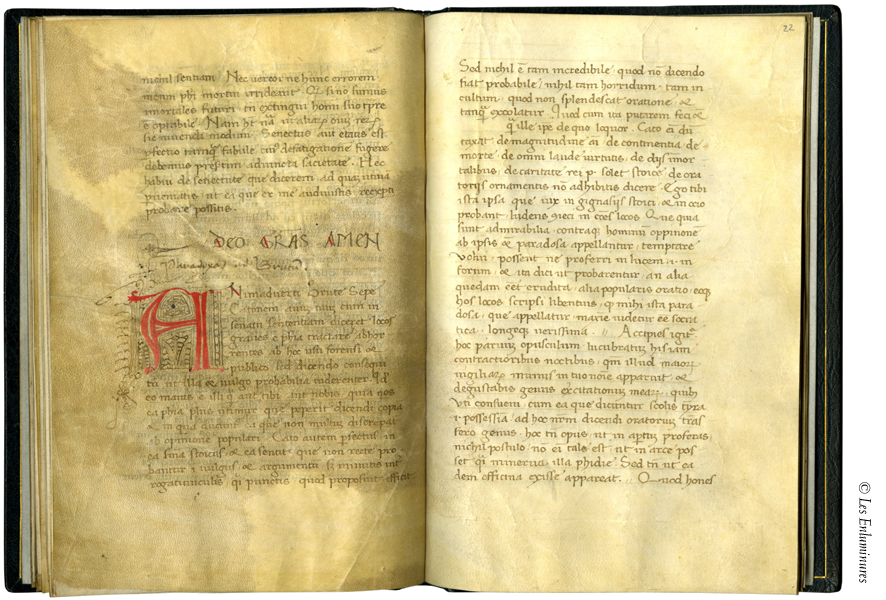 nichil sentiam. Nec vereor ne hunc errorem
meum phi mortui irrideant. Q sino sumus
imortales futuri tn extingui homi suo tpre
ē optabile. Nam ht nā ut aliarȝ oium rerȝ
sic vivendi modum. Senectus aut etatis est
pfectio tamqȝ fabule cuiꝰ defatigatione fugere
debemus presertim adiuncta sacietate. Hec
habui de senectute que dicerem ad quaȝ utina
pueniatis ut ea que ex me audivistis re expti
probare possitis.
DEO GRAS AMEN
Paradoxa ad Brutū.
ANimadverti Brute sepe
Catonem aum tuum cum in
senatu sententiam diceret locos
graves ex phia tractare abhor
rentes ab hoc usu forensi et
publico sed dicendo consequi
tn ut illa et vulgo probabilia viderentur. Id
eo maius est illi q aut tibi aut nobis quia nos
ea phia plus utimur que peperit dicendi copia
et in qua dicunt ea que non multum discrepāt
ab opinione populari. Cato autem pfectus in
ea sina stoicus et ea sentit que non recte pro
bantur i vulgus et argumenti sȝ minutis int
rogatiunculis qi punctis quod proposuit efficit
22
Sed nichil ē tam incredibile quod nō dicendo
fiat probabile nihil tam horridum tam in
cultum quod non splendescat oratione et
tanqȝ excolatur. Quod cum ita putarem feci et
qȝ ille ipe de quo loquor. Cato ei dū
taxat de magnitudine ai de continentia de
morte de omni laude virtutis de diis imor
talibus de caritate rei p. solet stoice de ora
toriis ornamentis nō adhibitis dicere. Ego tibi
ista ipsa que vix in gignasiis stoici et in ocio
probant ludens gieci in cōes locos. Que quia
sunt admirabilia contraqȝ hominū oppinione
ab ipsis et paradosa appellantur temptare
volui possent ne proferri in lucem i. in
forum et ita dici ut probarentur an alia
quedam eēt erudita alia popularis oratio eoqȝ
hos locos scripsi libentius q mihi ista para
dosa que appellātur marie videtur eē socra
tica longeqȝ verissima. Accipies igit
hoc parvum opusculum lucubratum his iam
contractioribus noctibus qm illud maiorȝ
vigiliarȝ munus in tuo noīe apparuit et
degustabis genus excitationū mearȝ quibȝ
uti consuevi cum ea que dicuntur scolis
i. possessia ad hoc nrm dicendi oratoriuȝ trās
fero genus hoc tn opus ut in apertuȝ proferas
nichil postulo nō ei tale est ut in arce pos
set qi minerva illa phidie. Sed tn ut ea
dem officina exisse appareat. Quod hones
© Les Enluminures